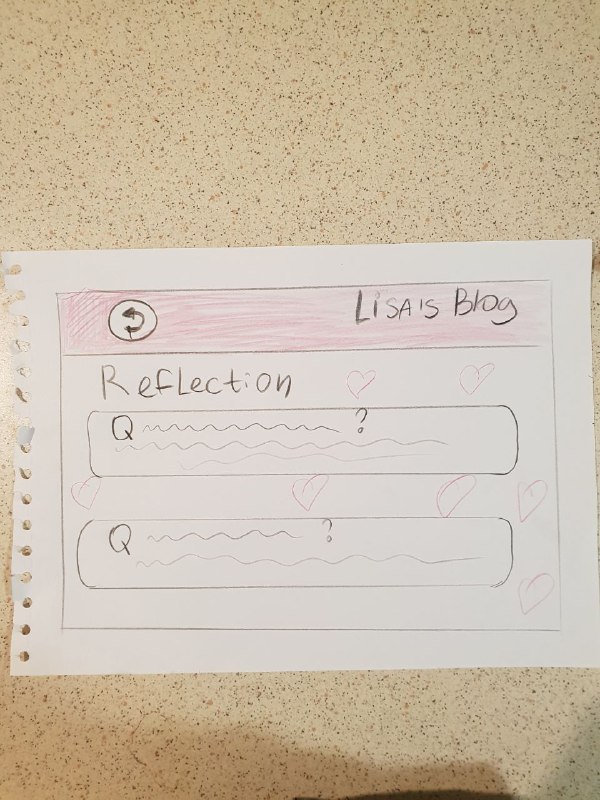 LiSA's Blog
Reflection
Q ?
Q ?